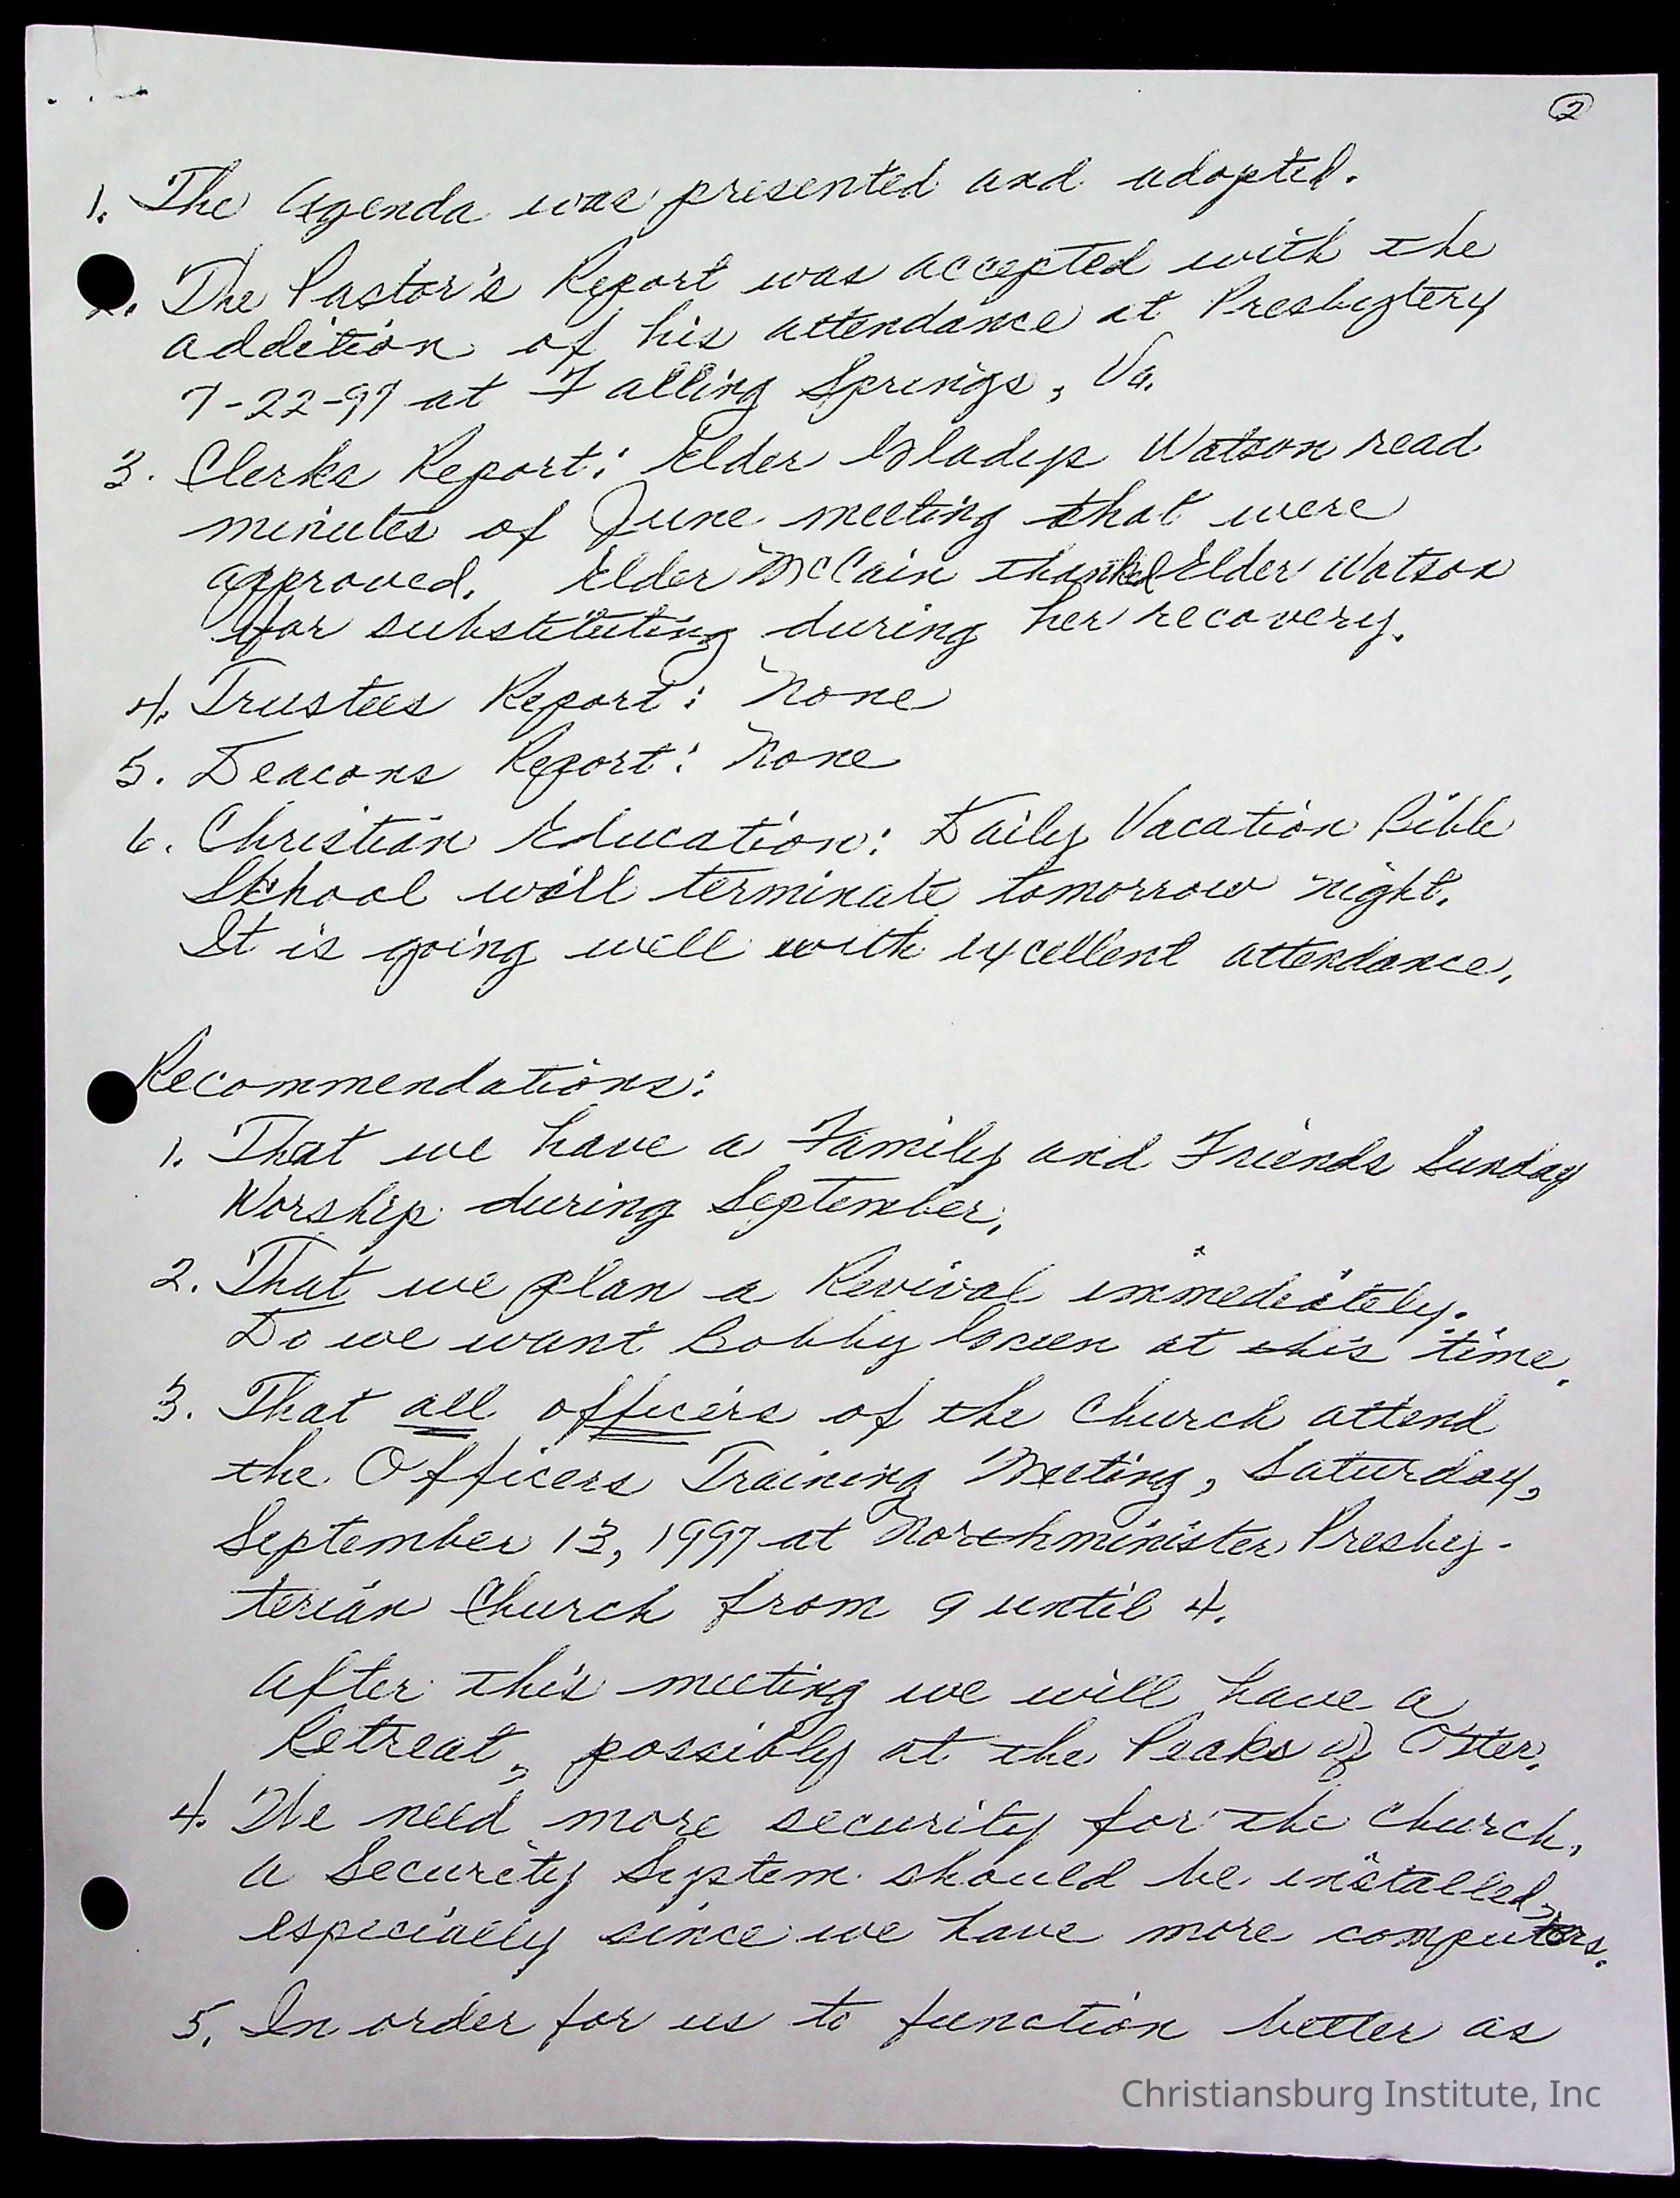 2
1. The Agenda was presented and adopted.
2. The Pastor's Report was accepted with the
addition of his attendance at Presbytery
7-22-97 at Falling Springs, Va.
3. Clerks Report: Elder Gladys Watson read
minutes of June meeting that were
approved. Elder McCain thanked Elder Watson
for substituting during her recovery.
4. Trustees Report: None
5. Deacons Report: None
6. Christian Education: Daily Vacation Bible
School will terminate tomorrow night.
It is going well with excellent attendance.
Recommendations:
1. That we have a Family and Friends Sunday
Worship during September.
2. That we plan a Revival immediately.
Do we want Bobby Green at this time.
3. That all officers of the Church attend
the Officers Training Meeting, Saturday,
September 13, 1997 at Northminister Presby-
terian Church from 9 until 4.
After this meeting we will have a
Retreat, possibly at the Peaks of Otter.
4. We need more security for the Church,
a Security System should be installed,
especially since we have more computers.
5. In order for us to function better as
Christiansburg Institute, Inc